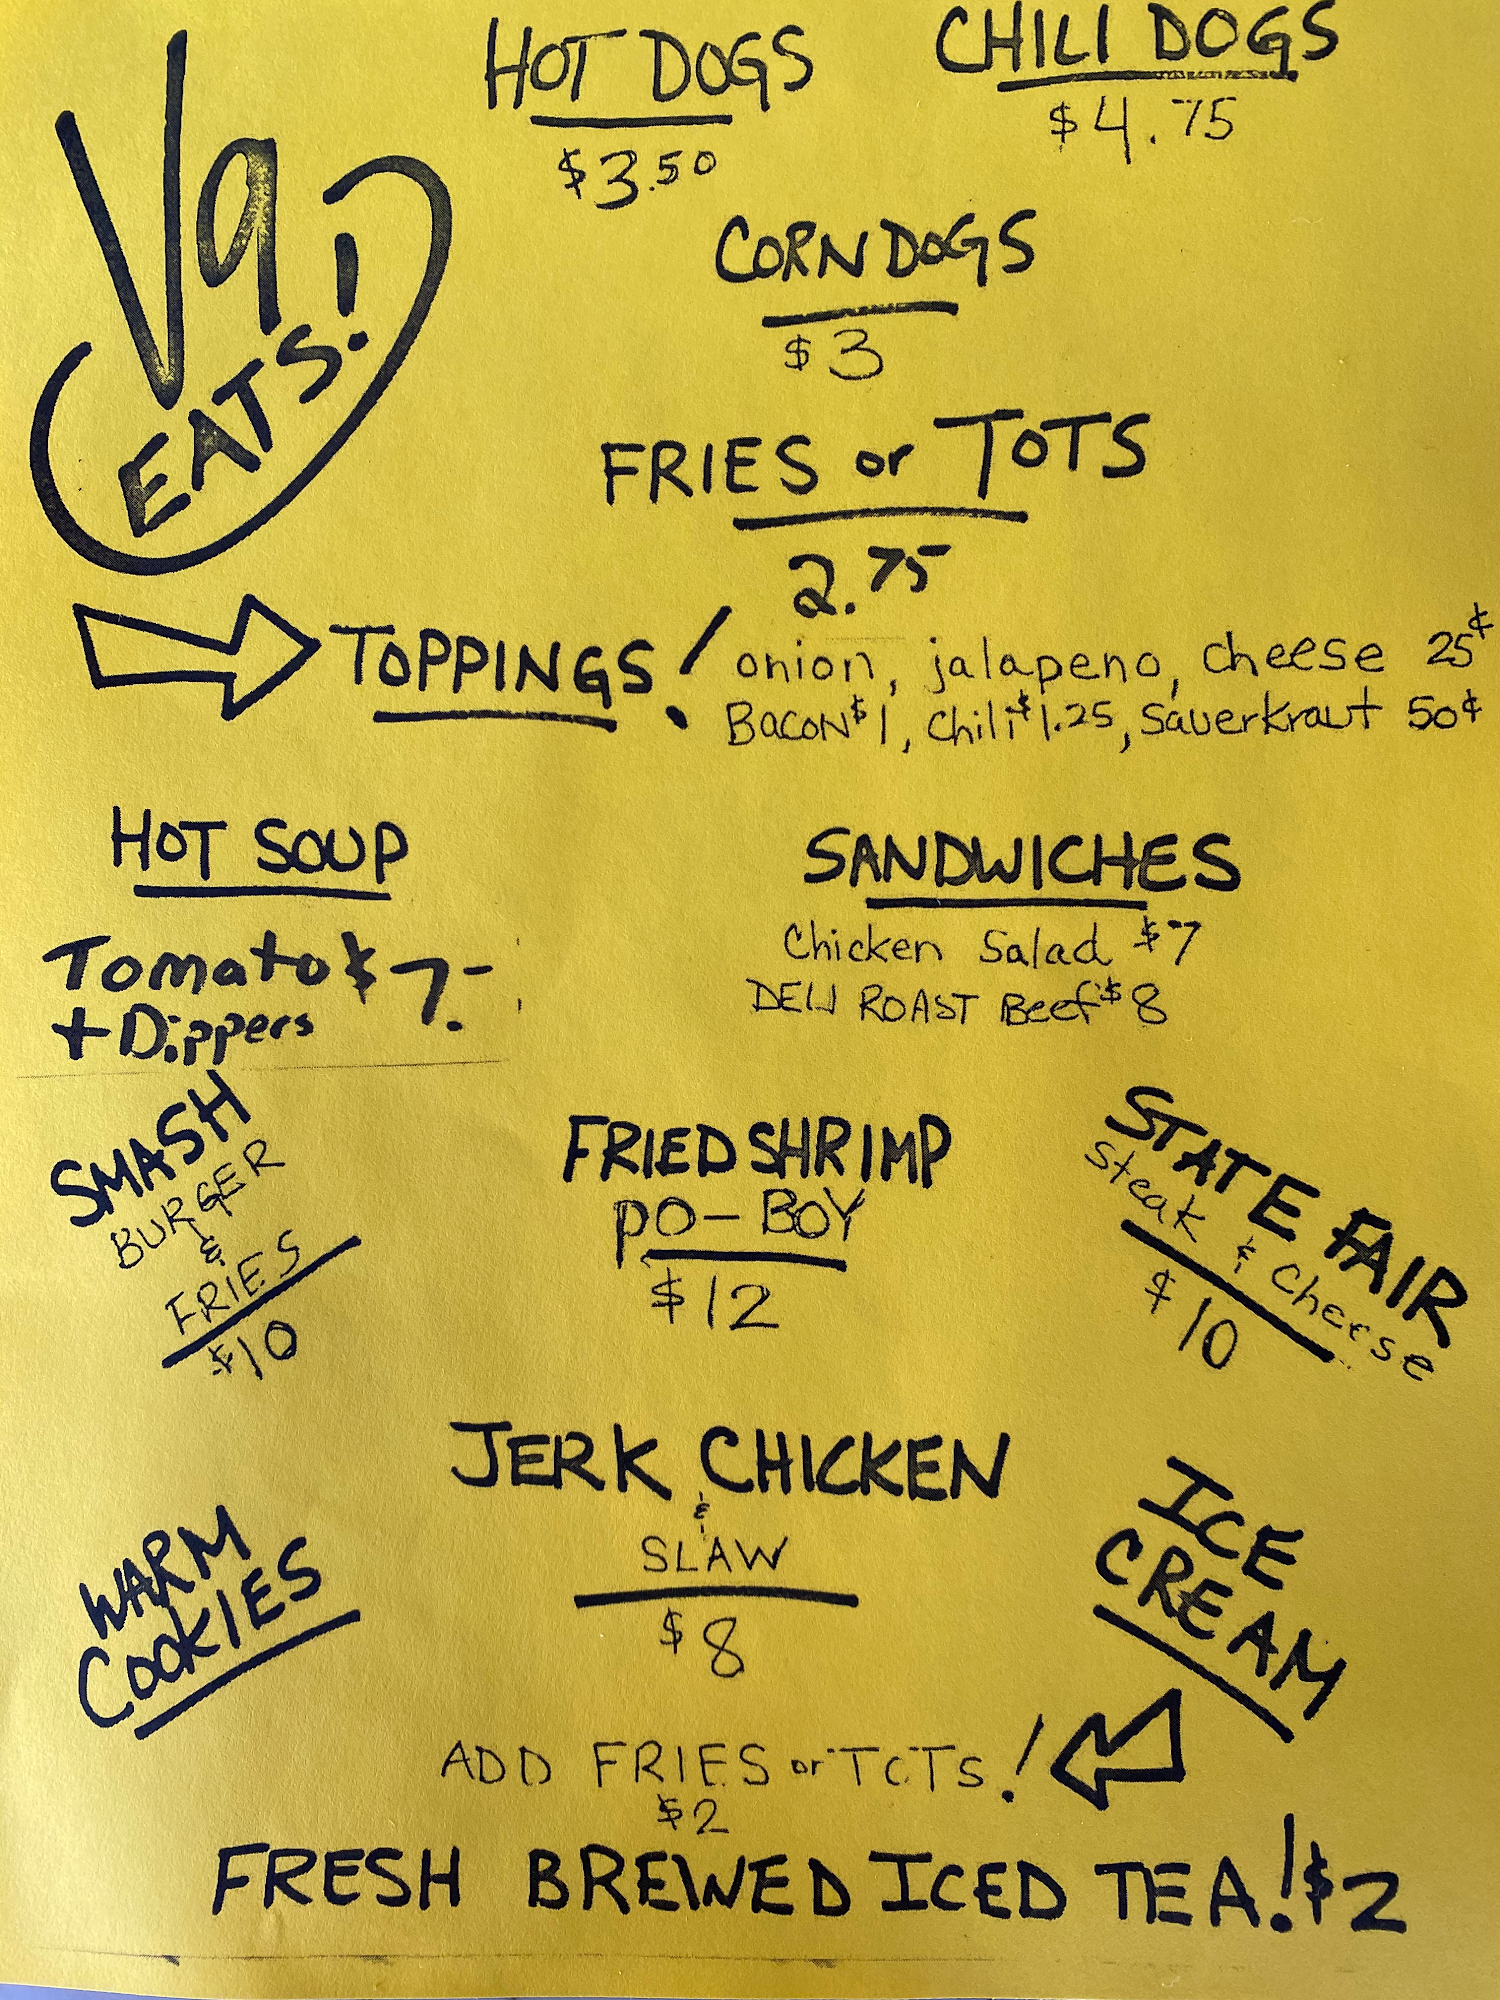 Va
EATS!
HOT DOGS
$3.50
CHILI DOGS
$4.75
CORN DOGS
$3
FRIES or TOTS
2.75
TOPPINGS! onion, jalapeno, cheese 25¢
BACON $1, Chili $1.25, Sauerkraut 50¢
HOT SOUP
Tomato $7.-
+ Dippers
SANDWICHES
Chicken Salad $7
DELI ROAST Beef $8
SMASH
BURGER
&
FRIES
$10
FRIED SHRIMP
PO-BOY
$12
STATE FAIR
Steak & Cheese
$10
JERK CHICKEN
&
SLAW
$8
WARM
COOKIES
ICE
CREAM
ADD FRIES or TOTS!
$2
FRESH BREWED ICED TEA! $2